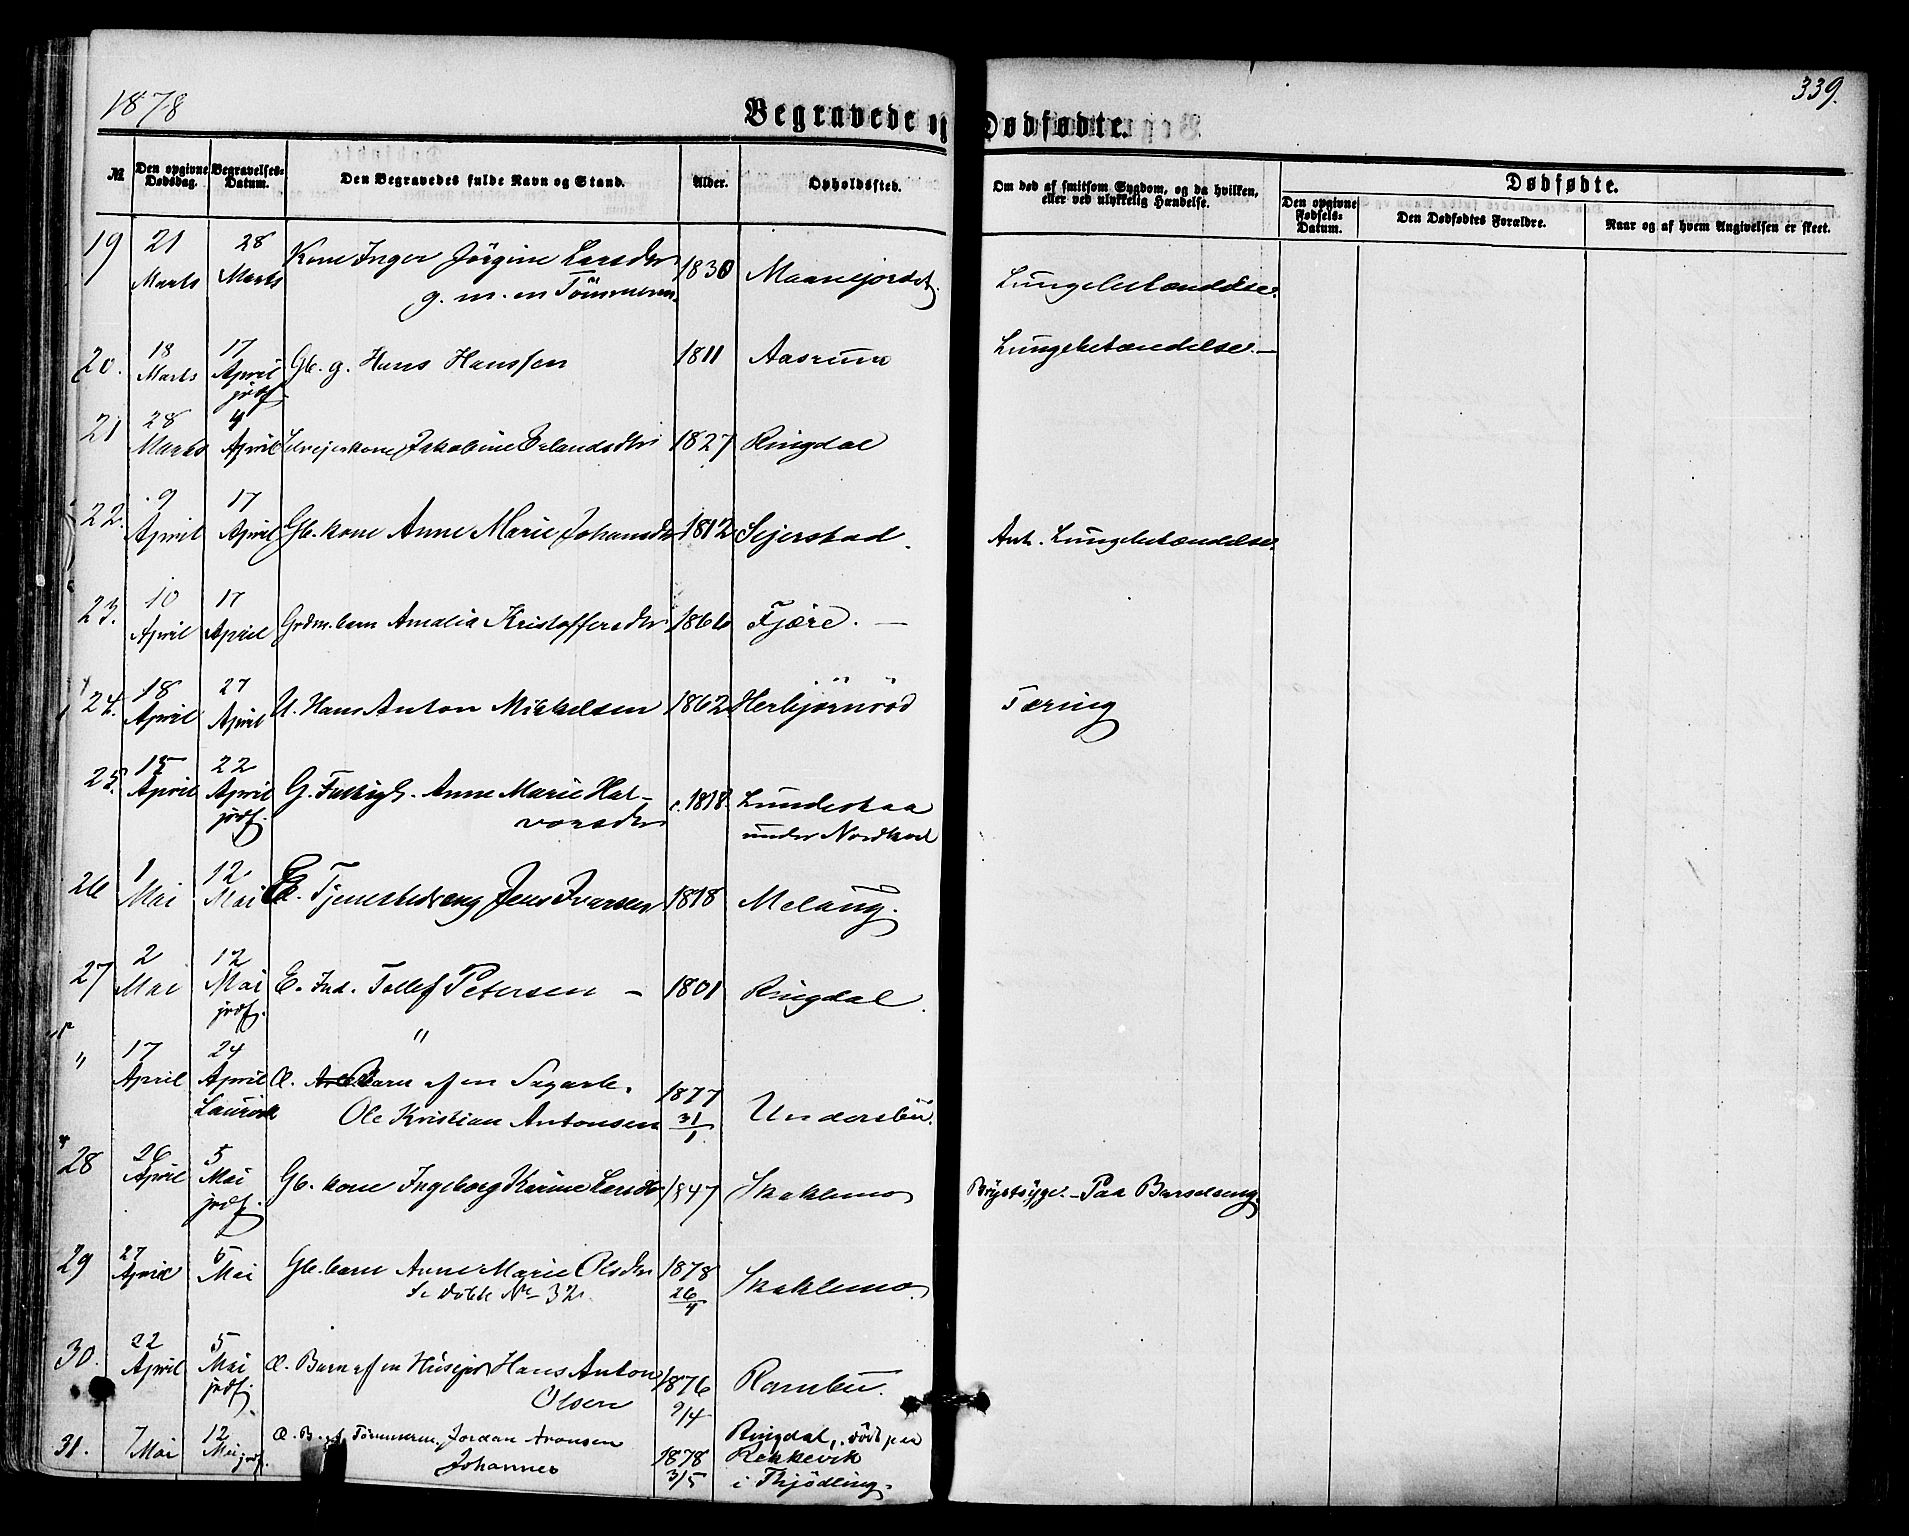 1878
339.
Begravede og Dødfødte.
№
Den opgivne Dødsdag.
Begravelses-Datum.
Den Begravedes fulde Navn og Stand.
Alder.
Opholdssted.
Om død af smitsom Sygdom, og da hvilken, eller ved ulykkelig Hændelse.
Dødfødte.
Den opgivne Fødsels-Datum.
Den Dødfødtes Forældre.
Naar og af hvem Angivelsen er skeet.
19 21 Marts 28 Marts Kone Inger Jørgine Larsdtr 1830 Maanejordet. Lungebetændelse.
g. m. en Tømmerm.
20. 18 Marts 17 April jrdf. Gb. g. Hans Hanssen 1811 Aasrum Lungebetændelse. —
21 28 Marts 4 April Selvejerkone Jakobine Erlandsdtr 1827 Ringdal
22. 9 April 17 April Gb. kone Anne Marie Johansdtr 1812 Sejerstad. Ant. Lungebetændelse.
23. 10 April 17 April Grdm. barn Amalia Kristoffersdtr 1866 Fjære. —
24. 18 April 27 April U. Hans Anton Mikkelsen 1862 Herbjørnrød Tæring
25. 15 April 22 April jrdf. G. Fattigl. Anne Marie Hal- c. 1818. Lundestaa
vorsdtr under Nordkvel
26 1 Mai 12 Mai E. Tjenestedreng Jens Ivarsen 1818 Melaug.
27 2 Mai 12 Mai jrdf. E. Ind. Tollef Petersen — 1801 Ringdal.
"
" 17 April 24 April Laurvik Æ. Barn af en Sagarb.
Ole Kristian Antonsen 1877 31/1 Undersbu.
28 26 April 5 Mai jrdf. Gb. kone Ingeborg Karine Larsdtr 1847 Skaklemo Brystsyge. — Paa Barselseng
29 27 April 5 Mai Gb. barn Anne Marie Olsdtr 1878 26/4 Skaklemo.
Se døbte No 32.
30. 22 April 5 Mai jrdf. Æ. Barn af en Husejer Hans Anton 1876 9/4 Rambu.
Olsen
31. 7 Mai 12 Mai jrdf. Æ. B. af Tømmerm. Jordan Aronsen Ringdal, død paa
Johannes 1878 3/5 Rekkevik
i Thjødling.